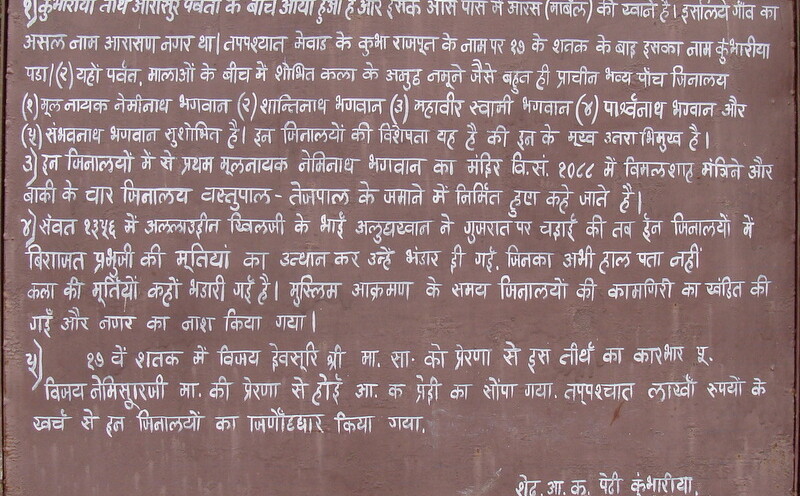 १) कुंभारीया तीर्थ आरासुर पर्वतो के बीच आया हुआ है और इसके आस पास में आरस (मार्बल) की खाने है। इसलिये गाँव का
असल नाम आरासण नगर था। तपपश्यात मेवाड के कुंभा राजपूत के नाम पर १७ के शतक के बाद इसका नाम कुंभारीया
पडा/(२) यहाँ पर्वत, मालाओं के बीच में शोभित कला के अमुह नमूने जैसे बहुत ही प्राचीन भव्य पाँच जिनालय
(१) मूलनायक नेमीनाथ भगवान (२) शान्तिनाथ भगवान (३) महावीर स्वामी भगवान (४) पार्श्वनाथ भगवान और
(५) संभवनाथ भगवान सुशोभित है। इन जिनालयों की विशेषता यह है की इन के मूख उतरा भिमुख है।
३) इन जिनालयों में से प्रथम मूलनायक नेमिनाथ भगवान का मंदिर वि.सं. १०८८ में विमलशाह मंत्रिने और
बाकी के चार जिनालय वस्तुपाल - तेजपाल के जमाने में निर्मित हुए कहे जाते है।
४) संवत १३५६ में अललाउद्दीन खिलजी के भाई अलुघखान ने गुजरात पर चडाई की तब ईन जिनालयों में
बिराजित प्रभुजी की मूतियां का उत्थान कर उन्हें भंडार दी गई, जिनका अभी हाल पता नहीं
कला की मूर्तियों कहाँ भंडारी गई है। मुस्लिम आक्रमण के समय जिनालयों की कामगिरी का खंडित की
गई और नगर का नाश किया गया।
५) १७ वें शतक में विजय देवसूरि श्री मा. सा. की प्रेरणा से इस तीर्थ का कारभार पू.
विजय नेमिसूरजी मा. की प्रेरणा से होई आ. क पेढी का सोंपा गया. तपपश्चात लाखों रुपयों के
खर्च से इन जिनालयों का जिर्णोद्धार किया गया.
शेठ. आ. क. पेढी कुंभारीया.